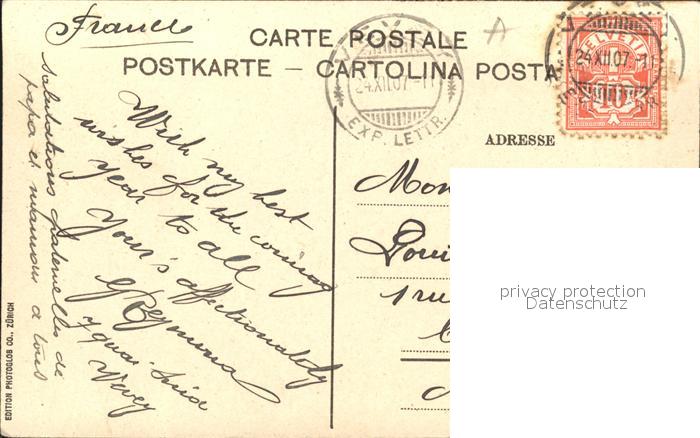 France
CARTE POSTALE
POSTKARTE – CARTOLINA POSTA
ADRESSE
HELVETIA
10
24.XII.07-11
24.XII.07-11
EXP. LETTR.
A
With my best
wishes for the coming
year to all
Your's affectionately
G Reymond
7 quai Sina
Vevey
Salutations fraternelles de
papa et maman à tous
Mon
Loui
1 rue
privacy protection
Datenschutz
EDITION PHOTOGLOB CO., ZÜRICH